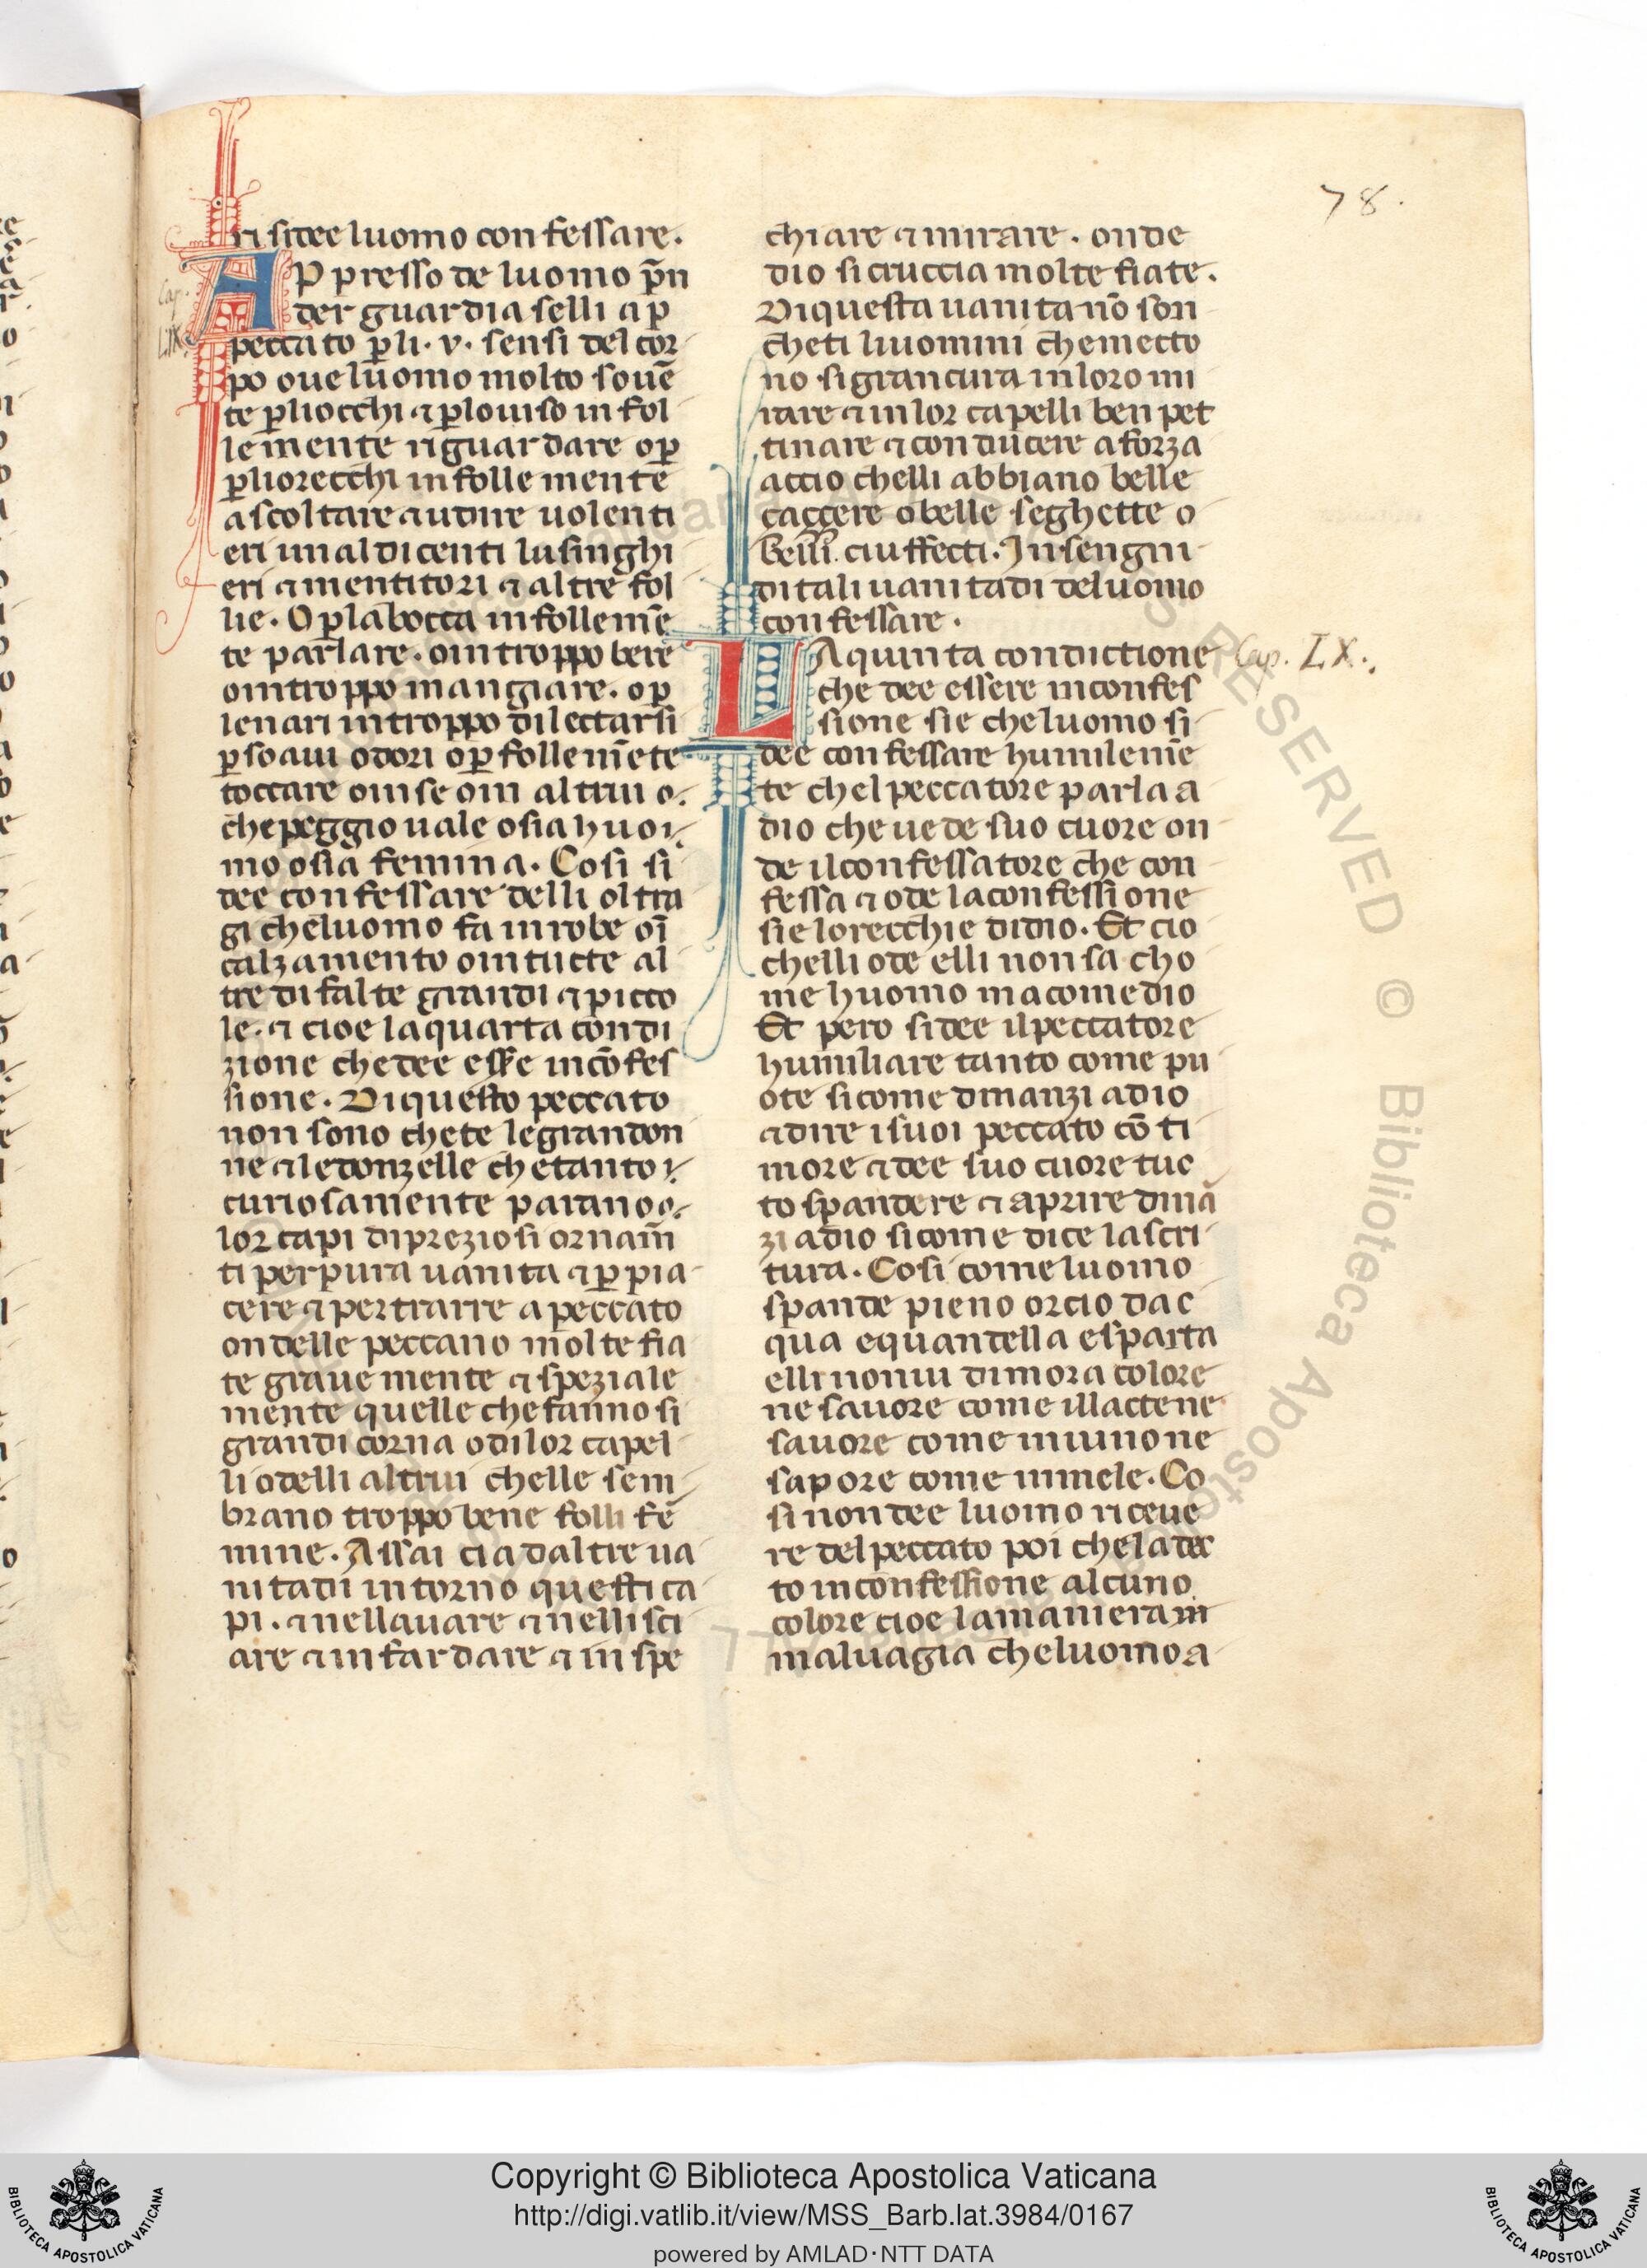 78.
ri si dee luomo confessare.
Cap. LIX.
AP presso de luomo p̄n
der guardia selli a p̲
peccato p̲ li .v. sensi del cor
po oue luomo molto souē
te p̲ liocchi ⁊ p̲ louiso in fol
le mente riguardare o p̲
p̲ liorecchi in folle mente
ascoltare ⁊ udire uolenti
eri i maldicenti lusinghi
eri ⁊ mentitori ⁊ altre fol
lie. O p̲ la bocca in follemē
te parlare. o in troppo bere
o in troppo mangiare. o p̲
le nari in troppo dilectarsi
p̲ soaui odori o p̲ follemēte
toccare o in se o in altrui o
che peggio uale o sia huo
mo o sia femina. Cosi si
dee confessare delli oltra
gi che luomo fa in robe o ī
calzamento o in tucte al
tre difalte grandi ⁊ picco
le. ⁊ cioe la quarta condi
zione che dee essere in cōfes
sione. Di questo peccato
non sono chete le gran don
ne ⁊ le donzelle che tanto
curiosamente parano
lor capi di preziosi ornam̄
ti per pura uanita ⁊ p̲ pia
cere ⁊ per trarre a peccato
ondelle peccano molte fia
te graue mente ⁊ speziale
mente quelle che fanno si
grandi corna o di lor capel
li o delli altrui chelle sem
brano troppo bene folli fē
mine. Assai ci a daltre ua
nitadi intorno questi ca
pi. ⁊ nellauare ⁊ nellisci
are ⁊ infardare ⁊ in spe
chiare ⁊ mirare. onde
dio si cruccia molte fiate.
Di questa uanita nō son
cheti liuomini che mecto
no si gran cura in loro mi
rare ⁊ in lor capelli ben pet
tinare ⁊ conducere a forza
accio chelli abbiano belle
caççere o belle seghette o
belli ciuffecti. In sengni
di tali uanitadi de luomo
confessare.
LA quinta condictione
Cap. LX.
che dee essere in confes
sione sie che luomo si
dee confessare humilemē
te chel peccatore parla a
dio che uede suo cuore on
de il confessatore che con
fessa ⁊ ode la confessione
sie lorecchie di dio. Et cio
chelli ode elli non sa cho
me huomo ma come dio
Et pero si dee il peccatore
humiliare tanto come pu
ote si come dinanzi a dio
⁊ dire i suoi peccato cō ti
more ⁊ dee suo cuore tuc
to spandere ⁊ aprire dinā
zi a dio si come dice la scri
tura. Cosi come luomo
spande pieno orcio dac
qua e quandella e sparta
elli non ui dimora colore
ne sauore come il lacte ne
sauore come in uino ne
sapore come in mele. Co
si non dee luomo riceue
re del peccato poi che la dec
to in confessione alcuno
colore cioe la maniera in
maluagia che luomo a
Copyright © Biblioteca Apostolica Vaticana
http://digi.vatlib.it/view/MSS_Barb.lat.3984/0167
powered by AMLAD·NTT DATA
BIBLIOTECA APOSTOLICA VATICANA
BIBLIOTECA APOSTOLICA VATICANA